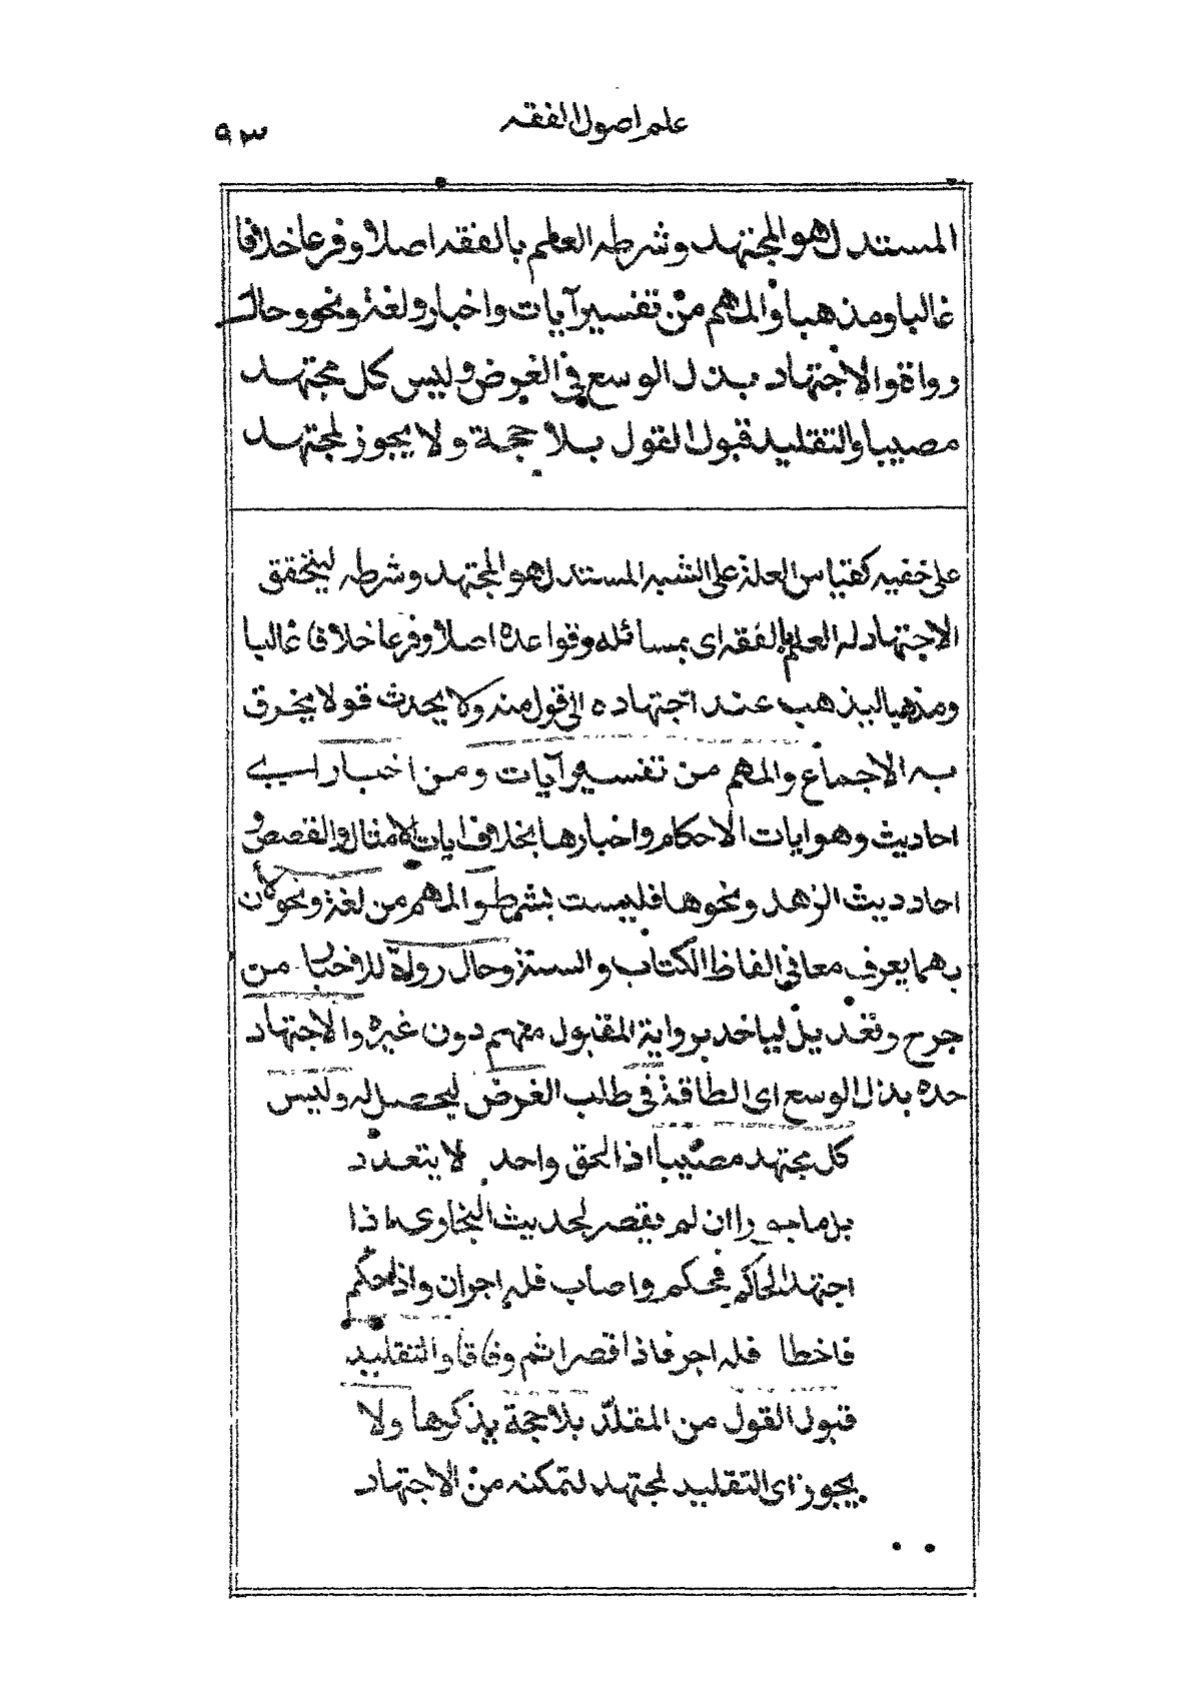 علم اصول الفقه
٩٣
المستدل هو المجتهد وشرطه العلم بالفقه اصلا وفرعا خلافا
غالبا ومذهبا والمهم من تفسير آيات واخبار ولغة ونحو وحال
رواة والاجتهاد بذل الوسع في الغرض وليس كل مجتهد
مصيبا والتقليد قبول القول بلا حجة ولا يجوز لمجتهد
على خفيه كقياس العلة على الشبه المستدل هو المجتهد وشرطه ليتحقق
الاجتهاد له العلم بالفقه اى بمسائله وقواعده اصلا وفرعا خلافا غالبا
ومذهبا ليذهب عند اجتهاده الى قول منه ولا يحدث قولا يخرق
به الاجماع والمهم من تفسير آيات ومن اخبار اى
احاديث وهو ايات الاحكام واخبارها بخلاف ايات الامثال والقصص و
احاديث الزهد ونحوها فليست بشرط والمهم من لغة ونحو لان
بهما يعرف معاني الفاظ الكتاب والسنة وحال رواة للاخبار من
جرح وتعديل لياخذ برواية المقبول منهم دون غيره والاجتهاد
حده بذل الوسع اى الطاقة في طلب الغرض ليحصل له وليس
كل مجتهد مصيبا اذ الحق واحد لا يتعدد
بل ماجور ان لم يقصر لحديث البخاوى اذا
اجتهد الحاكم فحكم واصاب فله اجران واذا حكم
فاخطا فله اجر فاذا قصر اثم وفاقا والتقليد
قبول القول من المقلد بلا حجة يذكرها ولا
يجوز اى التقليد لمجتهد لتمكنه من الاجتهاد